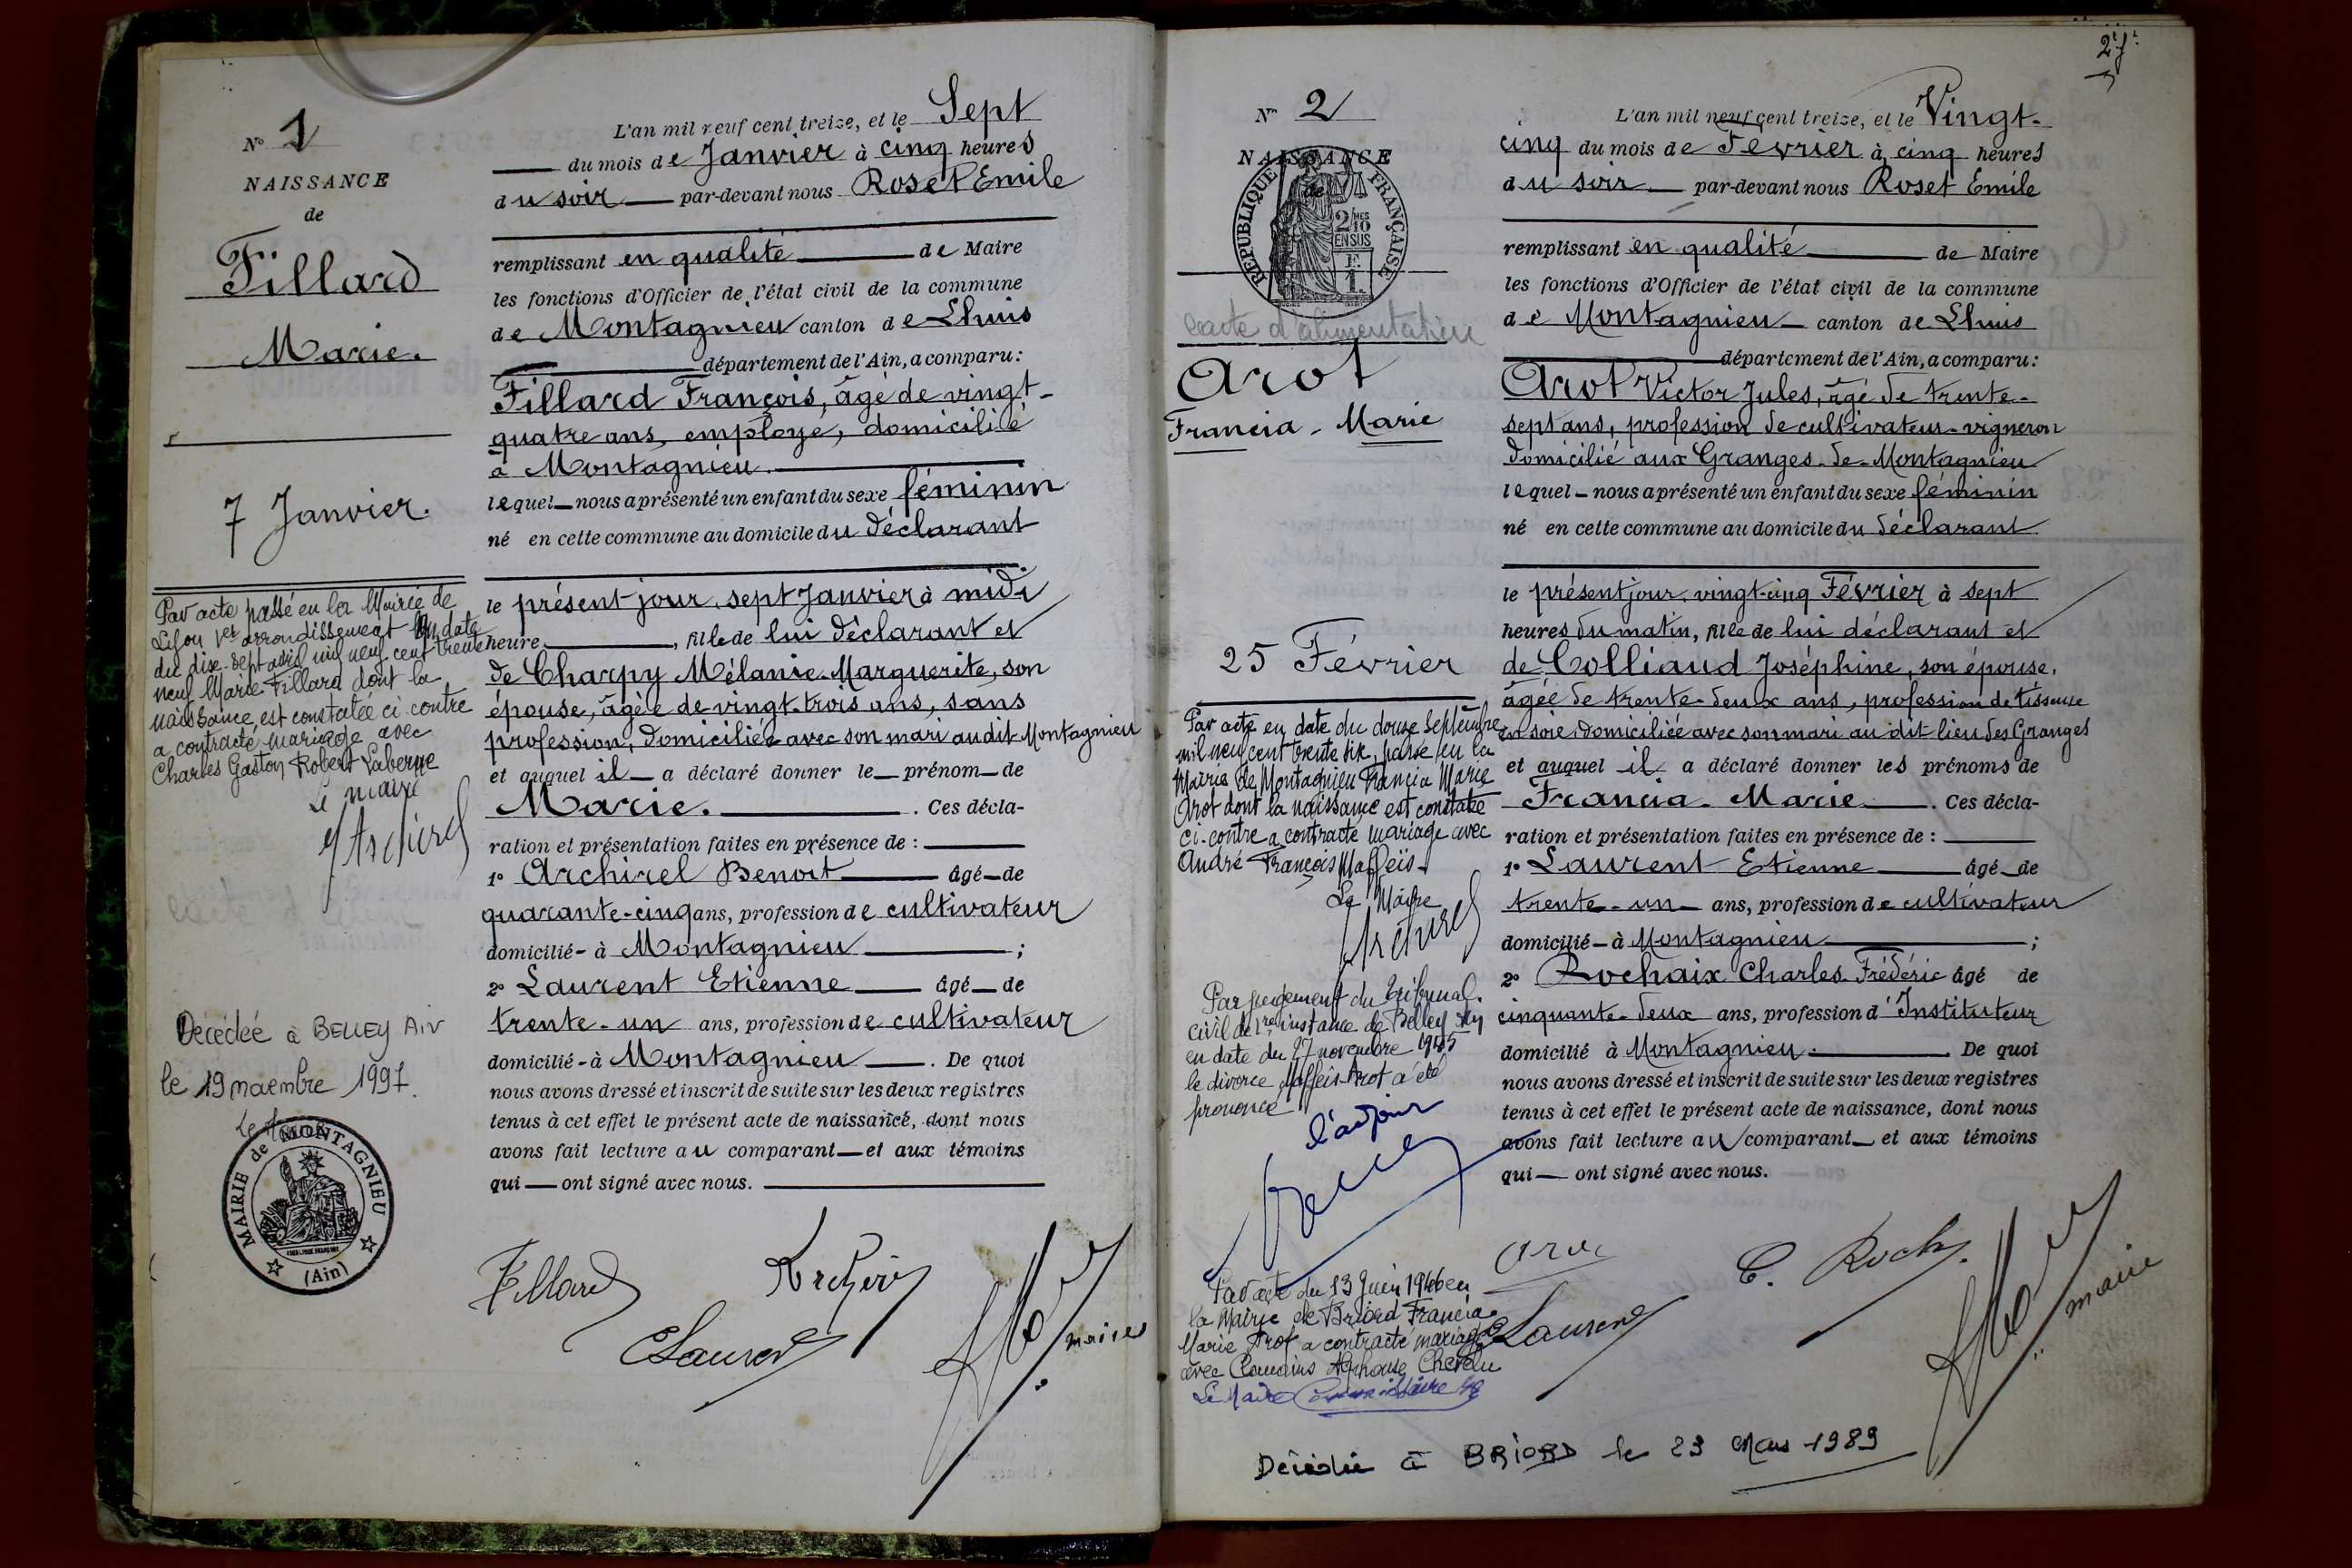 N° 1
NAISSANCE
de
Fillard
Marie.
7 Janvier.
Par acte passé en la Mairie de
Lyon 1er arrondissement en date
du dix-sept avril mil neuf cent trente
neuf Marie Fillard dont la
naissance est constatée ci contre
a contracté mariage avec
Charles Gaston Robert Laberne
Le maire
Archirel
Décédée à BELLEY Ain
le 19 novembre 1997.
Le Maire
MAIRIE de MONTAGNIEU
(Ain)
L'an mil neuf cent treize, et le Sept
du mois de Janvier à cinq heures
du soir par-devant nous Roset Emile
remplissant en qualité de Maire
les fonctions d'Officier de l'état civil de la commune
de Montagnieu canton de Lhuis
département de l'Ain, a comparu:
Fillard François, âgé de vingt-
quatre ans, employé, domicilié
à Montagnieu.
lequel nous a présenté un enfant du sexe féminin
né en cette commune au domicile du déclarant
le présent jour, sept Janvier à midi
heure, fille de lui déclarant et
de Charpy Mélanie-Marguerite, son
épouse, âgée de vingt-trois ans, sans
profession, domiciliée avec son mari au dit Montagnieu
et auquel il a déclaré donner le prénom de
Marie. Ces décla-
ration et présentation faites en présence de :
1° Archirel Benoit âgé de
quarante-cinq ans, profession de cultivateur
domicilié à Montagnieu ;
2° Laurent Etienne âgé de
trente-un ans, profession de cultivateur
domicilié à Montagnieu. De quoi
nous avons dressé et inscrit de suite sur les deux registres
tenus à cet effet le présent acte de naissance, dont nous
avons fait lecture au comparant et aux témoins
qui ont signé avec nous.
Fillard
Archirel
E Laurent
maire
2e f.
N° 2
NAISSANCE
de
RÉPUBLIQUE FRANÇAISE
2/10 MES
EN SUS
F.
1.
carte d'alimentation
Arot
Francia-Marie
25 Février
Par acte en date du douze Septembre
mil neuf cent trente six, passé en la
Mairie de Montagnieu Francia Marie
Arot dont la naissance est constatée
ci-contre a contracté mariage avec
André François Maffeïs.
Le Maire
Archirel
Par jugement du Tribunal
civil de 1re instance de Belley Ain
en date du 27 novembre 1945
le divorce Maffeïs-Arot a été
prononcé
l'adjoint
Par acte du 13 Juin 1946 en
la Mairie de Briord Francia
Marie Arot a contracté mariage
avec Alphonse
Le Maire
Décédée à BRIORD le 23 Mars 1989
L'an mil neuf cent treize, et le Vingt-
cinq du mois de Février à cinq heures
du soir par-devant nous Roset Emile
remplissant en qualité de Maire
les fonctions d'Officier de l'état civil de la commune
de Montagnieu canton de Lhuis
département de l'Ain, a comparu:
Arot Victor Jules, âgé de trente-
sept ans, profession de cultivateur-vigneron
domicilié aux Granges-de-Montagnieu
lequel nous a présenté un enfant du sexe féminin
né en cette commune au domicile du déclarant
le présent jour, vingt-cinq Février à sept
heures du matin, fille de lui déclarant et
de Colliaud Joséphine, son épouse,
âgée de trente-deux ans, profession de tisseuse
en soie domiciliée avec son mari au dit lieu des Granges
et auquel il a déclaré donner les prénoms de
Francia-Marie. Ces décla-
ration et présentation faites en présence de :
1° Laurent Etienne âgé de
trente-un ans, profession de cultivateur
domicilié à Montagnieu ;
2° Rochaix Charles Frédéric âgé de
cinquante-deux ans, profession d'Instituteur
domicilié à Montagnieu. De quoi
nous avons dressé et inscrit de suite sur les deux registres
tenus à cet effet le présent acte de naissance, dont nous
avons fait lecture au comparant et aux témoins
qui ont signé avec nous.
Arot
C. Roch
E Laurent
maire